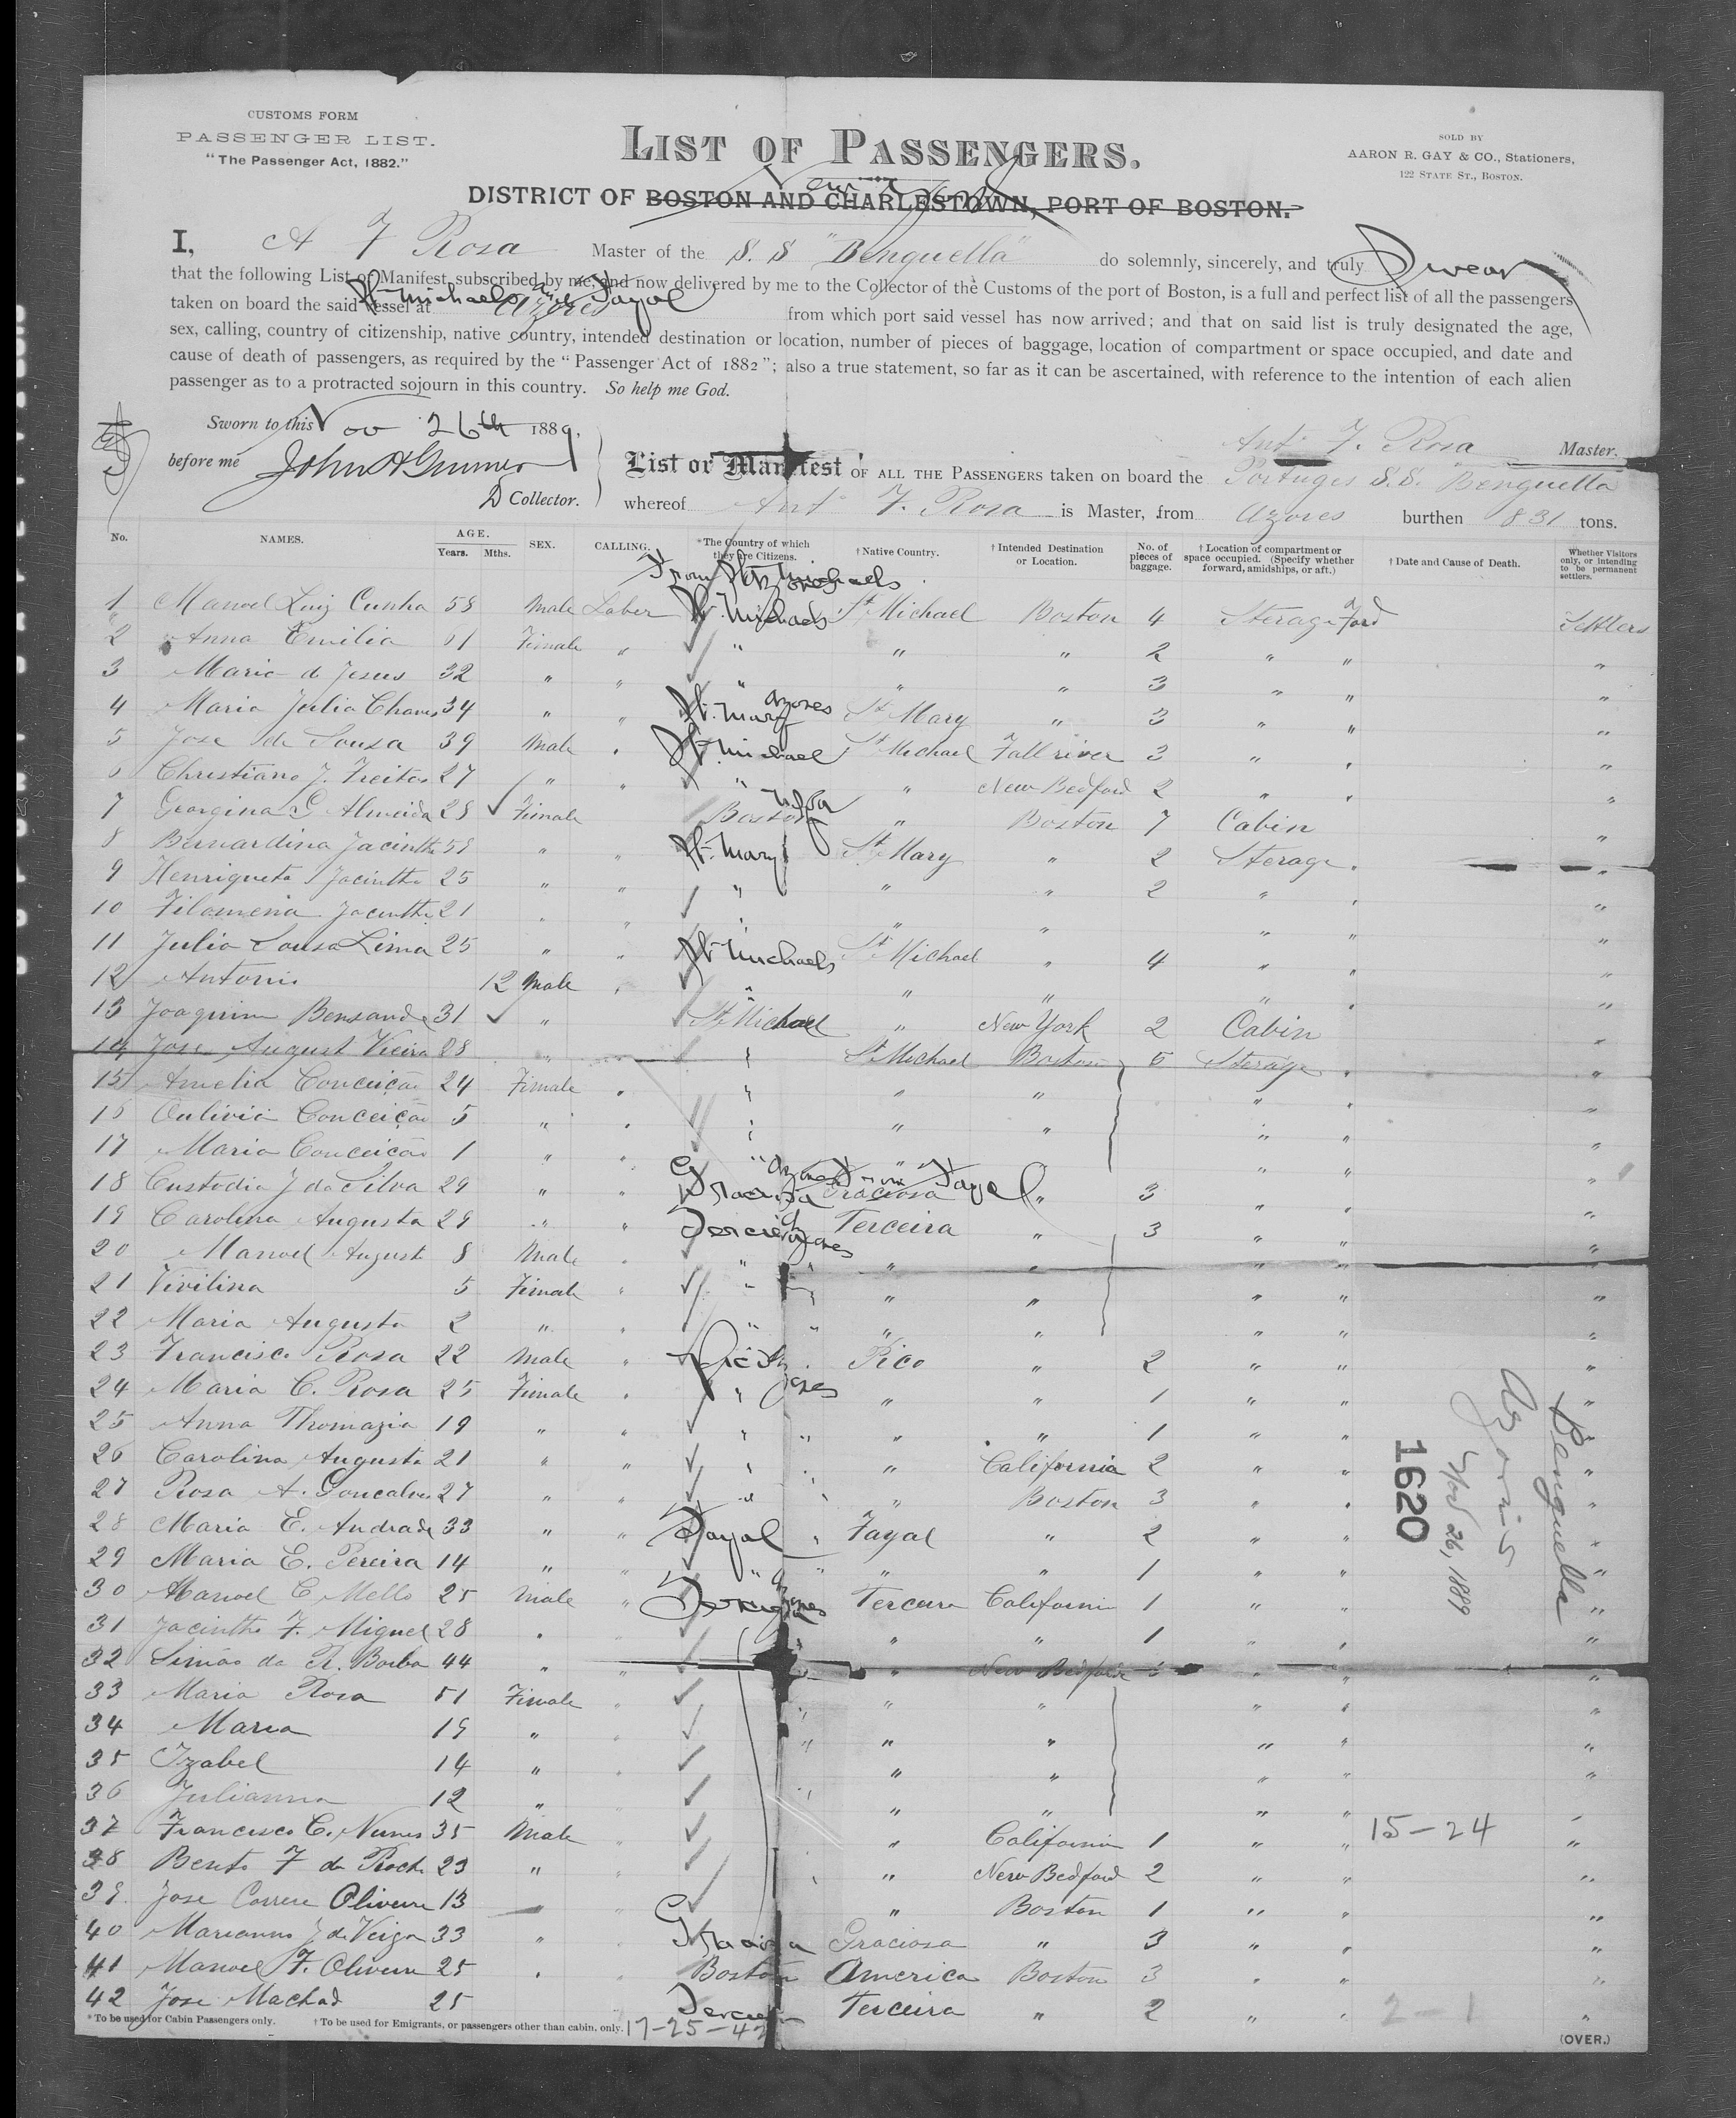 CUSTOMS FORM
PASSENGER LIST.
"The Passenger Act, 1882."
LIST OF PASSENGERS.
SOLD BY
AARON R. GAY & CO., Stationers,
122 STATE ST., BOSTON.
DISTRICT OF BOSTON AND CHARLESTOWN, PORT OF BOSTON.
I, A F Rosa Master of the S. S "Benguella" do solemnly, sincerely, and truly Swear
that the following List or Manifest subscribed by me, and now delivered by me to the Collector of the Customs of the port of Boston, is a full and perfect list of all the passengers
taken on board the said vessel at St. Michaels and Fayal Azores from which port said vessel has now arrived; and that on said list is truly designated the age,
sex, calling, country of citizenship, native country, intended destination or location, number of pieces of baggage, location of compartment or space occupied, and date and
cause of death of passengers, as required by the "Passenger Act of 1882"; also a true statement, so far as it can be ascertained, with reference to the intention of each alien
passenger as to a protracted sojourn in this country. So help me God.
Sworn to this Nov 26th 1889,
before me John A
D Collector.
Ant F. Rosa Master.
List or Manifest OF ALL THE PASSENGERS taken on board the Portuges S.S. Benguella
whereof Ant F. Rosa is Master, from Azores burthen 831 tons.
No. NAMES. AGE. Years. Mths. SEX. CALLING. *The Country of which they are Citizens. †Native Country. †Intended Destination or Location. No. of pieces of baggage. †Location of compartment or space occupied. (Specify whether forward, amidships, or aft.) †Date and Cause of Death. Whether Visitors only, or intending to be permanent settlers.
From St Michaels
1 Manoel Luiz Cunha 58 Male Laber St. Michaels St Michael Boston 4 Sterage Ford Settlers
2 Anna Emilia 61 Female " " " " 2 " " "
3 Maria de Jesus 32 " " " " " 3 " " "
4 Maria Julia Chaves 34 " " St. Mary Azores St Mary " 3 " " "
5 Jose de Sousa 39 Male " St. Michael St Michael Fall river 3 " " "
6 Christiano J. Freitas 27 " " " " New Bedford 2 " " "
7 Georgina G Almeida 28 Female Boston USA " Boston 7 Cabin "
8 Bernardina Jacintha 58 " " St. Mary St Mary " 2 Sterage " "
9 Henriqueta Jacintha 25 " " " " " 2 " " "
10 Filomena Jacintha 21 " " " " " " " "
11 Julia Sousa Lima 25 " " St Michaels St Michael " 4 " " "
12 Antonio 12 Male " " " " " " "
13 Joaquim Bensaude 31 " St Michael " New York 2 Cabin "
14 Jose August Vieira 28 " " St Michael Boston 5 Sterage " "
15 Amelia Conceição 24 Female " " " " " " "
16 Oulivia Conceição 5 " " " " " " " "
17 Maria Conceição 1 " " " " " " "
Azores From Fayal
18 Custodia J da Silva 29 " " Graciosa Graciosa " 3 " " "
19 Carolina Augusta 29 " " Terceira Azores Terceira " 3 " " "
20 Manoel August 8 Male " " " " " " "
21 Vivilina 5 Female " " " " " " "
22 Maria Augusta 2 " " " " " " " "
23 Francisco Rosa 22 Male " Pico Azores Pico " 2 " " "
24 Maria C. Rosa 25 Female " " " " 1 " " "
25 Anna Thomazia 19 " " " " " 1 " " "
26 Carolina Augusta 21 " " " " California 2 " " "
27 Rosa A. Goncalves 27 " " " " Boston 3 " " "
28 Maria E. Andrade 33 " " Fayal Fayal " 2 " " "
29 Maria E. Pereira 14 " " " " " 1 " " "
30 Manoel C Mello 25 Male " Terceira Azores Terceira California 1 " " "
31 Jacintho F. Miguel 28 " " " " 1 " " "
32 Simão da R. Borba 44 " " " New Bedford " " "
33 Maria Rosa 51 Female " " " " " "
34 Maria 19 " " " " " "
35 Izabel 14 " " " " " "
36 Julianna 12 " " " " " "
37 Francisco C. Nunes 35 Male " " California 1 " " 15-24 "
38 Bento F da Rocha 23 " " " New Bedford 2 " " "
39 Jose Correa Oliveira 13 " " Boston 1 " " "
40 Marianno J da Veiga 33 " " Graciosa Graciosa " 3 " " "
41 Manoel F. Oliveira 25 " " Boston America Boston 3 " " "
42 Jose Machad 25 Terceira Terceira " 2 " " 2-1 "
*To be used for Cabin Passengers only. †To be used for Emigrants, or passengers other than cabin, only. 17-25-42
(OVER.)
Benguella
Azores
Nov 26, 1889
1620